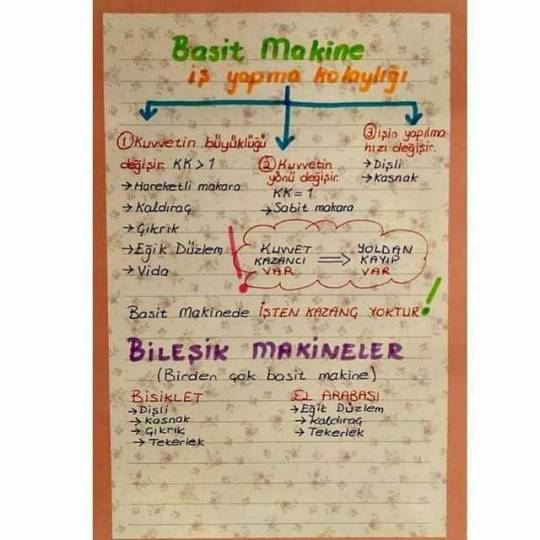 Basit Makine
iş yapma kolaylığı
① Kuvvetin büyüklüğü
değişir. KK > 1
→ Hareketli makara
→ Kaldıraç
→ Çıkrık
→ Eğik Düzlem
→ Vida
② Kuvvetin
yönü değişir.
KK = 1
→ Sabit makara
③ işin yapılma
hızı değişir.
→ Dişli
→ Kasnak
! KUVVET KAZANCI VAR ⇒ YOLDAN KAYIP VAR
Basit Makinede İŞTEN KAZANÇ YOKTUR!
BİLEŞİK MAKİNELER
(Birden çok basit makine)
BİSİKLET
→ Dişli
→ Kasnak
→ Çıkrık
→ Tekerlek
EL ARABASI
→ Eğik Düzlem
→ Kaldıraç
→ Tekerlek